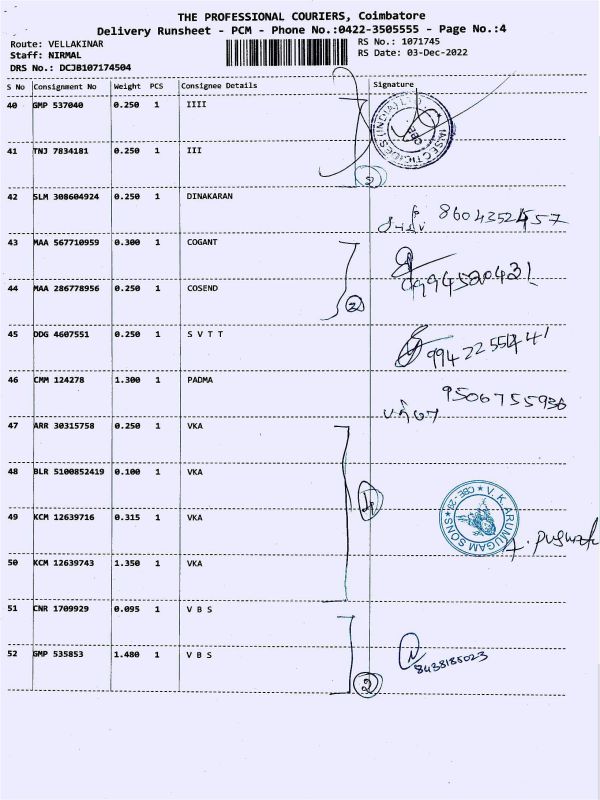 THE PROFESSIONAL COURIERS, Coimbatore
Delivery Runsheet - PCM - Phone No.:0422-3505555 - Page No.:4
Route: VELLAKINAR
RS No.: 1071745
Staff: NIRMAL
RS Date: 03-Dec-2022
DRS No.: DCJB107174504
S No Consignment No Weight PCS Consignee Details Signature
40 GMP 537040 0.250 1 IIII
INSECTICIDES (INDIA) LTD.
CBE
41 TNJ 7834181 0.250 1 III
2
42 SLM 308604924 0.250 1 DINAKARAN
8604352457
43 MAA 567710959 0.300 1 COGANT
9994520431
44 MAA 286778956 0.250 1 COSEND
2
45 DDG 4607551 0.250 1 S V T T
46 CMM 124278 1.300 1 PADMA
9506755936
47 ARR 30315758 0.250 1 VKA
48 BLR 5100852419 0.100 1 VKA
4
49 KCM 12639716 0.315 1 VKA
V. K. ARUMUGAM SONS
CBE-29
50 KCM 12639743 1.350 1 VKA
51 CNR 1709929 0.095 1 V B S
52 GMP 535853 1.480 1 V B S
8438185023
2